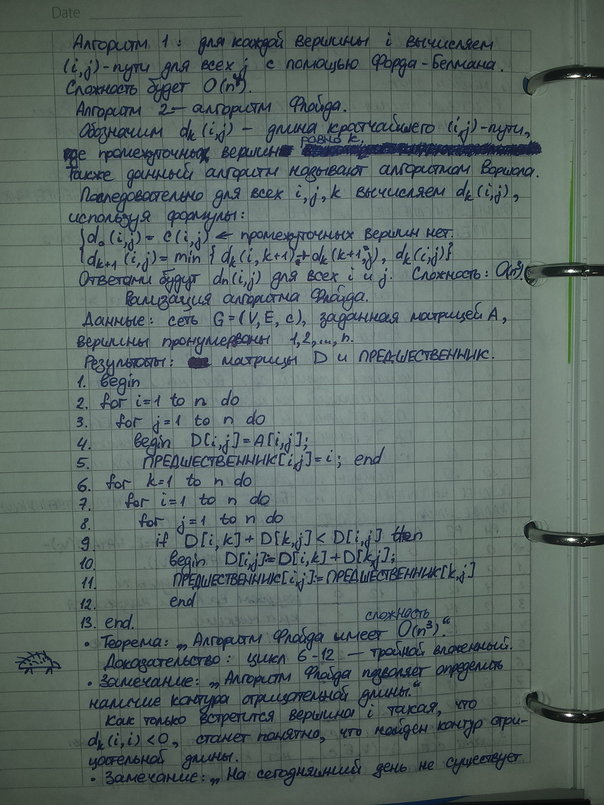 Date
Алгоритм 1: для каждой вершины i вычисляем
(i,j)-пути для всех j с помощью Форда-Белмана.
Сложность будет O(n⁴).
Алгоритм 2 — алгоритм Флойда.
Обозначим dk(i,j) – длина кротчайшего (i,j)-пути,
равно k.
где промежуточных вершин
Также данный алгоритм называют алгоритмом Воршола.
Последовательно для всех i, j, k вычисляем dk(i,j),
используя формулы:
{ d₀(i,j) = c(i,j) ← промежуточных вершин нет.
{ dk+1(i,j) = min { dk(i,k+1) + dk(k+1,j), dk(i,j)}
Ответами будут dn(i,j) для всех i и j. Сложность: O(n³)
Рализация алгоритма Флойда.
Данные: сеть G=(V,E,c), заданная матрицей A,
вершины пронумерованы 1,2,...,n.
Результаты: матрицы D и ПРЕДШЕСТВЕННИК.
1. begin
2. for i=1 to n do
3. for j=1 to n do
4. begin D[i,j]=A[i,j];
5. ПРЕДШЕСТВЕННИК[i,j]=i; end
6. for k=1 to n do
7. for i=1 to n do
8. for j=1 to n do
9. if D[i,k]+D[k,j]<D[i,j] then
10. begin D[i,j]:=D[i,k]+D[k,j];
11. ПРЕДШЕСТВЕННИК[i,j]:=ПРЕДШЕСТВЕННИК[k,j]
12. end
13. end.
сложность
• Теорема: „Алгоритм Флойда имеет O(n³).“
Доказательство: цикл 6-12 — тройной вложенный.
• Замечание: „Алгоритм Флойда позволяет определить
наличие контура отрицательной длины.“
Как только встретится вершина i такая, что
dk(i,i)<0, станет понятно, что найден контур отри-
цательной длины.
• Замечание: „На сегодняшний день не существует